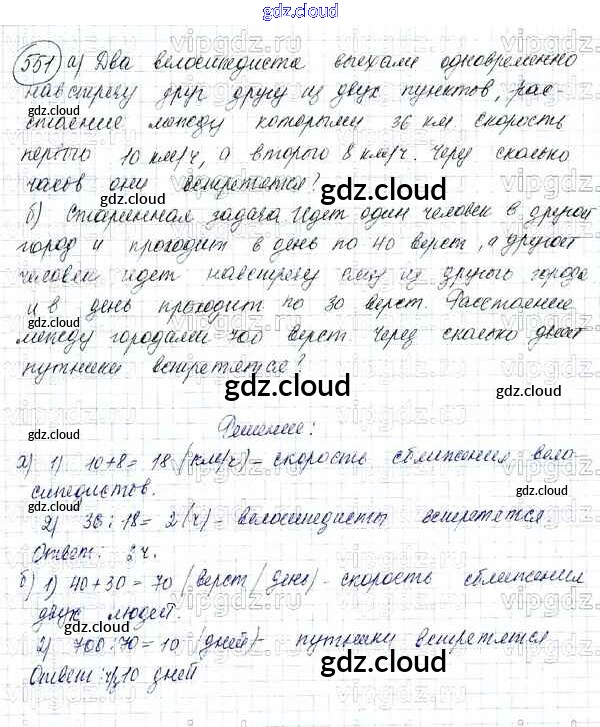 gdz.cloud
551 а) Два велосипедиста выехали одновременно
навстречу друг другу из двух пунктов, рас-
стояние между которыми 36 км. Скорость
первого 10 км/ч, а второго 8 км/ч. Через сколько
часов они встретятся?
б) Старинная задача. Идет один человек в другой
город и проходит в день по 40 верст, а другой
человек идет навстречу ему из другого города
и в день проходит по 30 верст. Расстояние
между городами 700 верст. Через сколько дней
путники встретятся?
Решение:
а) 1) 10+8= 18 (км/ч) - скорость сближения вело-
сипедистов.
2) 36:18= 2 (ч) - велосипедисты встретятся.
Ответ: 2 ч.
б) 1) 40+30 = 70 (верст/день) - скорость сближения
двух людей.
2) 700:70=10 (дней) - путники встретятся
Ответ: ч/з 10 дней
gdz.cloud